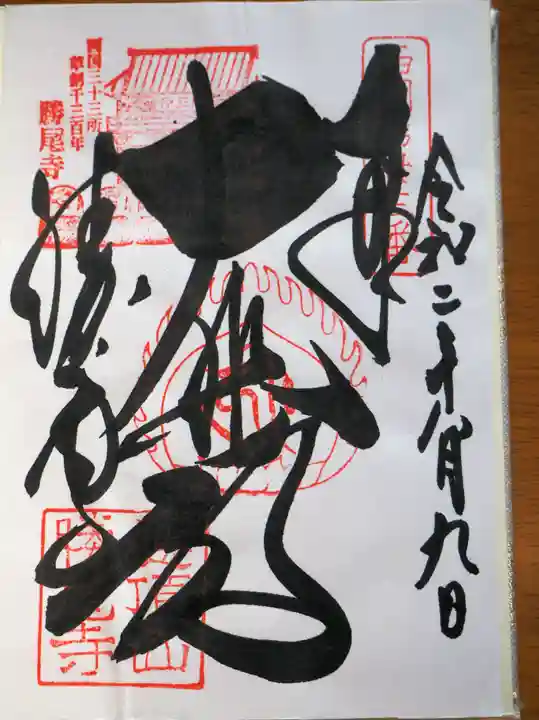 令和二年八月九日
奉拝
大悲殿
勝尾寺
西国三十三所
草創千三百年
勝尾寺
應頂山
勝尾寺